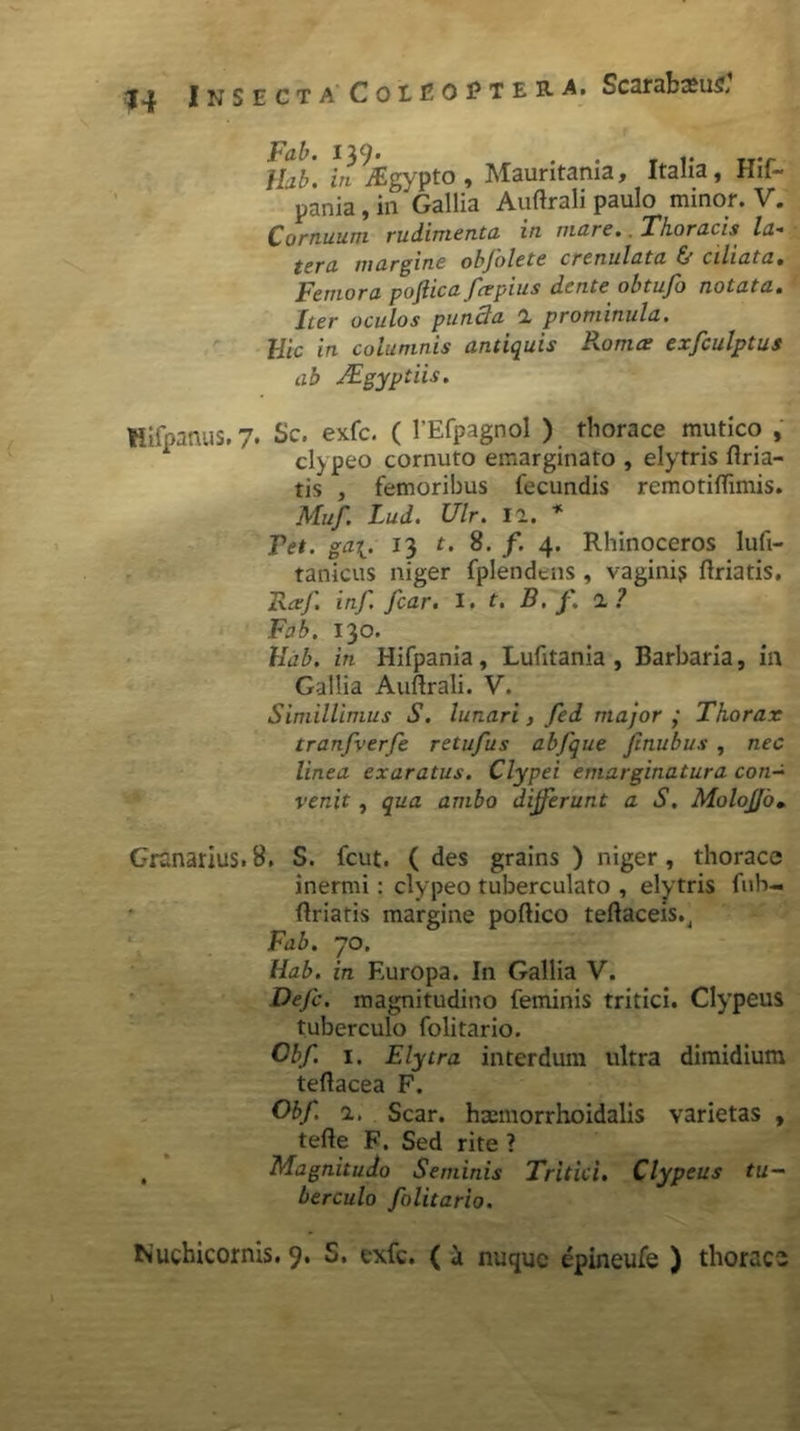 14 INSECTA COLEOPTERA. Scarabæus.
Fab. 139.
Hab. in Ægypto, Mauritania, Italia, Hiſ-
pania, in Gallia Auſtrali paulo minor. V.
Cornuum rudimenta in mare. . Thoracis la-
tera margine obſolete crenulata & ciliata.
Femora poſtica ſæpius dente obtuſo notata.
Iter oculos puncta 2 prominula.
Hic in columnis antiquis Romæ exſculptus
ab Ægyptiis.
Hiſpanus. 7. Sc. exſc. ( l'Eſpagnol ) thorace mutico ,
clypeo cornuto emarginato , elytris ſtria-
tis , femoribus ſecundis remotiſſimis.
Muſ. Lud. Ulr. 12. *
Pet. gaz. 13 t. 8. f. 4. Rhinoceros luſi-
tanicus niger ſplendens , vaginis ſtriatis.
Ræſ. inſ. ſcar. 1. t. B. f. 2 ?
Fab. 130.
Hab. in Hiſpania, Luſitania , Barbaria, in
Gallia Auſtrali. V.
Simillimus S. lunari, ſed major ; Thorax
tranſverſe retuſus abſque ſinubus , nec
linea exaratus. Clypei emarginatura con-
venit , qua ambo differunt a S. Moloſſo.
Granarius. 8. S. ſcut. ( des grains ) niger , thorace
inermi : clypeo tuberculato , elytris ſub-
ſtriatis margine poſtico teſtaceis.
Fab. 70.
Hab. in Europa. In Gallia V.
Deſc. magnitudino ſeminis tritici. Clypeus
tuberculo ſolitario.
Obſ. 1. Elytra interdum ultra dimidium
teſtacea F.
Obſ. 2. Scar. hæmorrhoidalis varietas ,
teſte F. Sed rite ?
Magnitudo Seminis Tritici. Clypeus tu-
berculo ſolitario.
Nuchicornis. 9. S. exſc. ( à nuque épineuſe ) thorace